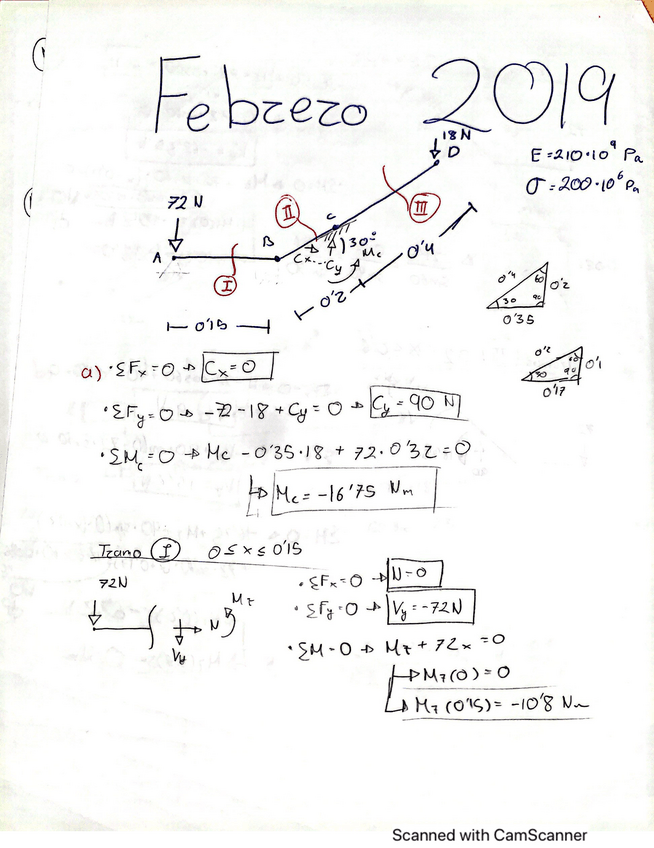 Febrero 2019
18 N
D
E = 210·10⁹ Pa
σ = 200·10⁶ Pa
72 N
II
C
III
A
B
30°
Cx
Cy
Mc
0'4
I
0'2
0'15
0'4
60
0'2
30
90
0'35
0'2
60
0'1
30
90
0'17
a) · ΣFx = 0 → Cx = 0
· ΣFy = 0 → -72 - 18 + Cy = 0 → Cy = 90 N
· ΣMc = 0 → Mc - 0'35·18 + 72·0'32 = 0
↳ Mc = -16'75 Nm
Tramo I 0 ≤ x ≤ 0'15
72N
N
Mz
Vy
· ΣFx = 0 → N = 0
· ΣFy = 0 → Vy = -72N
· ΣM = 0 → Mz + 72x = 0
↳ Mz(0) = 0
↳ Mz(0'15) = -10'8 Nm
Scanned with CamScanner